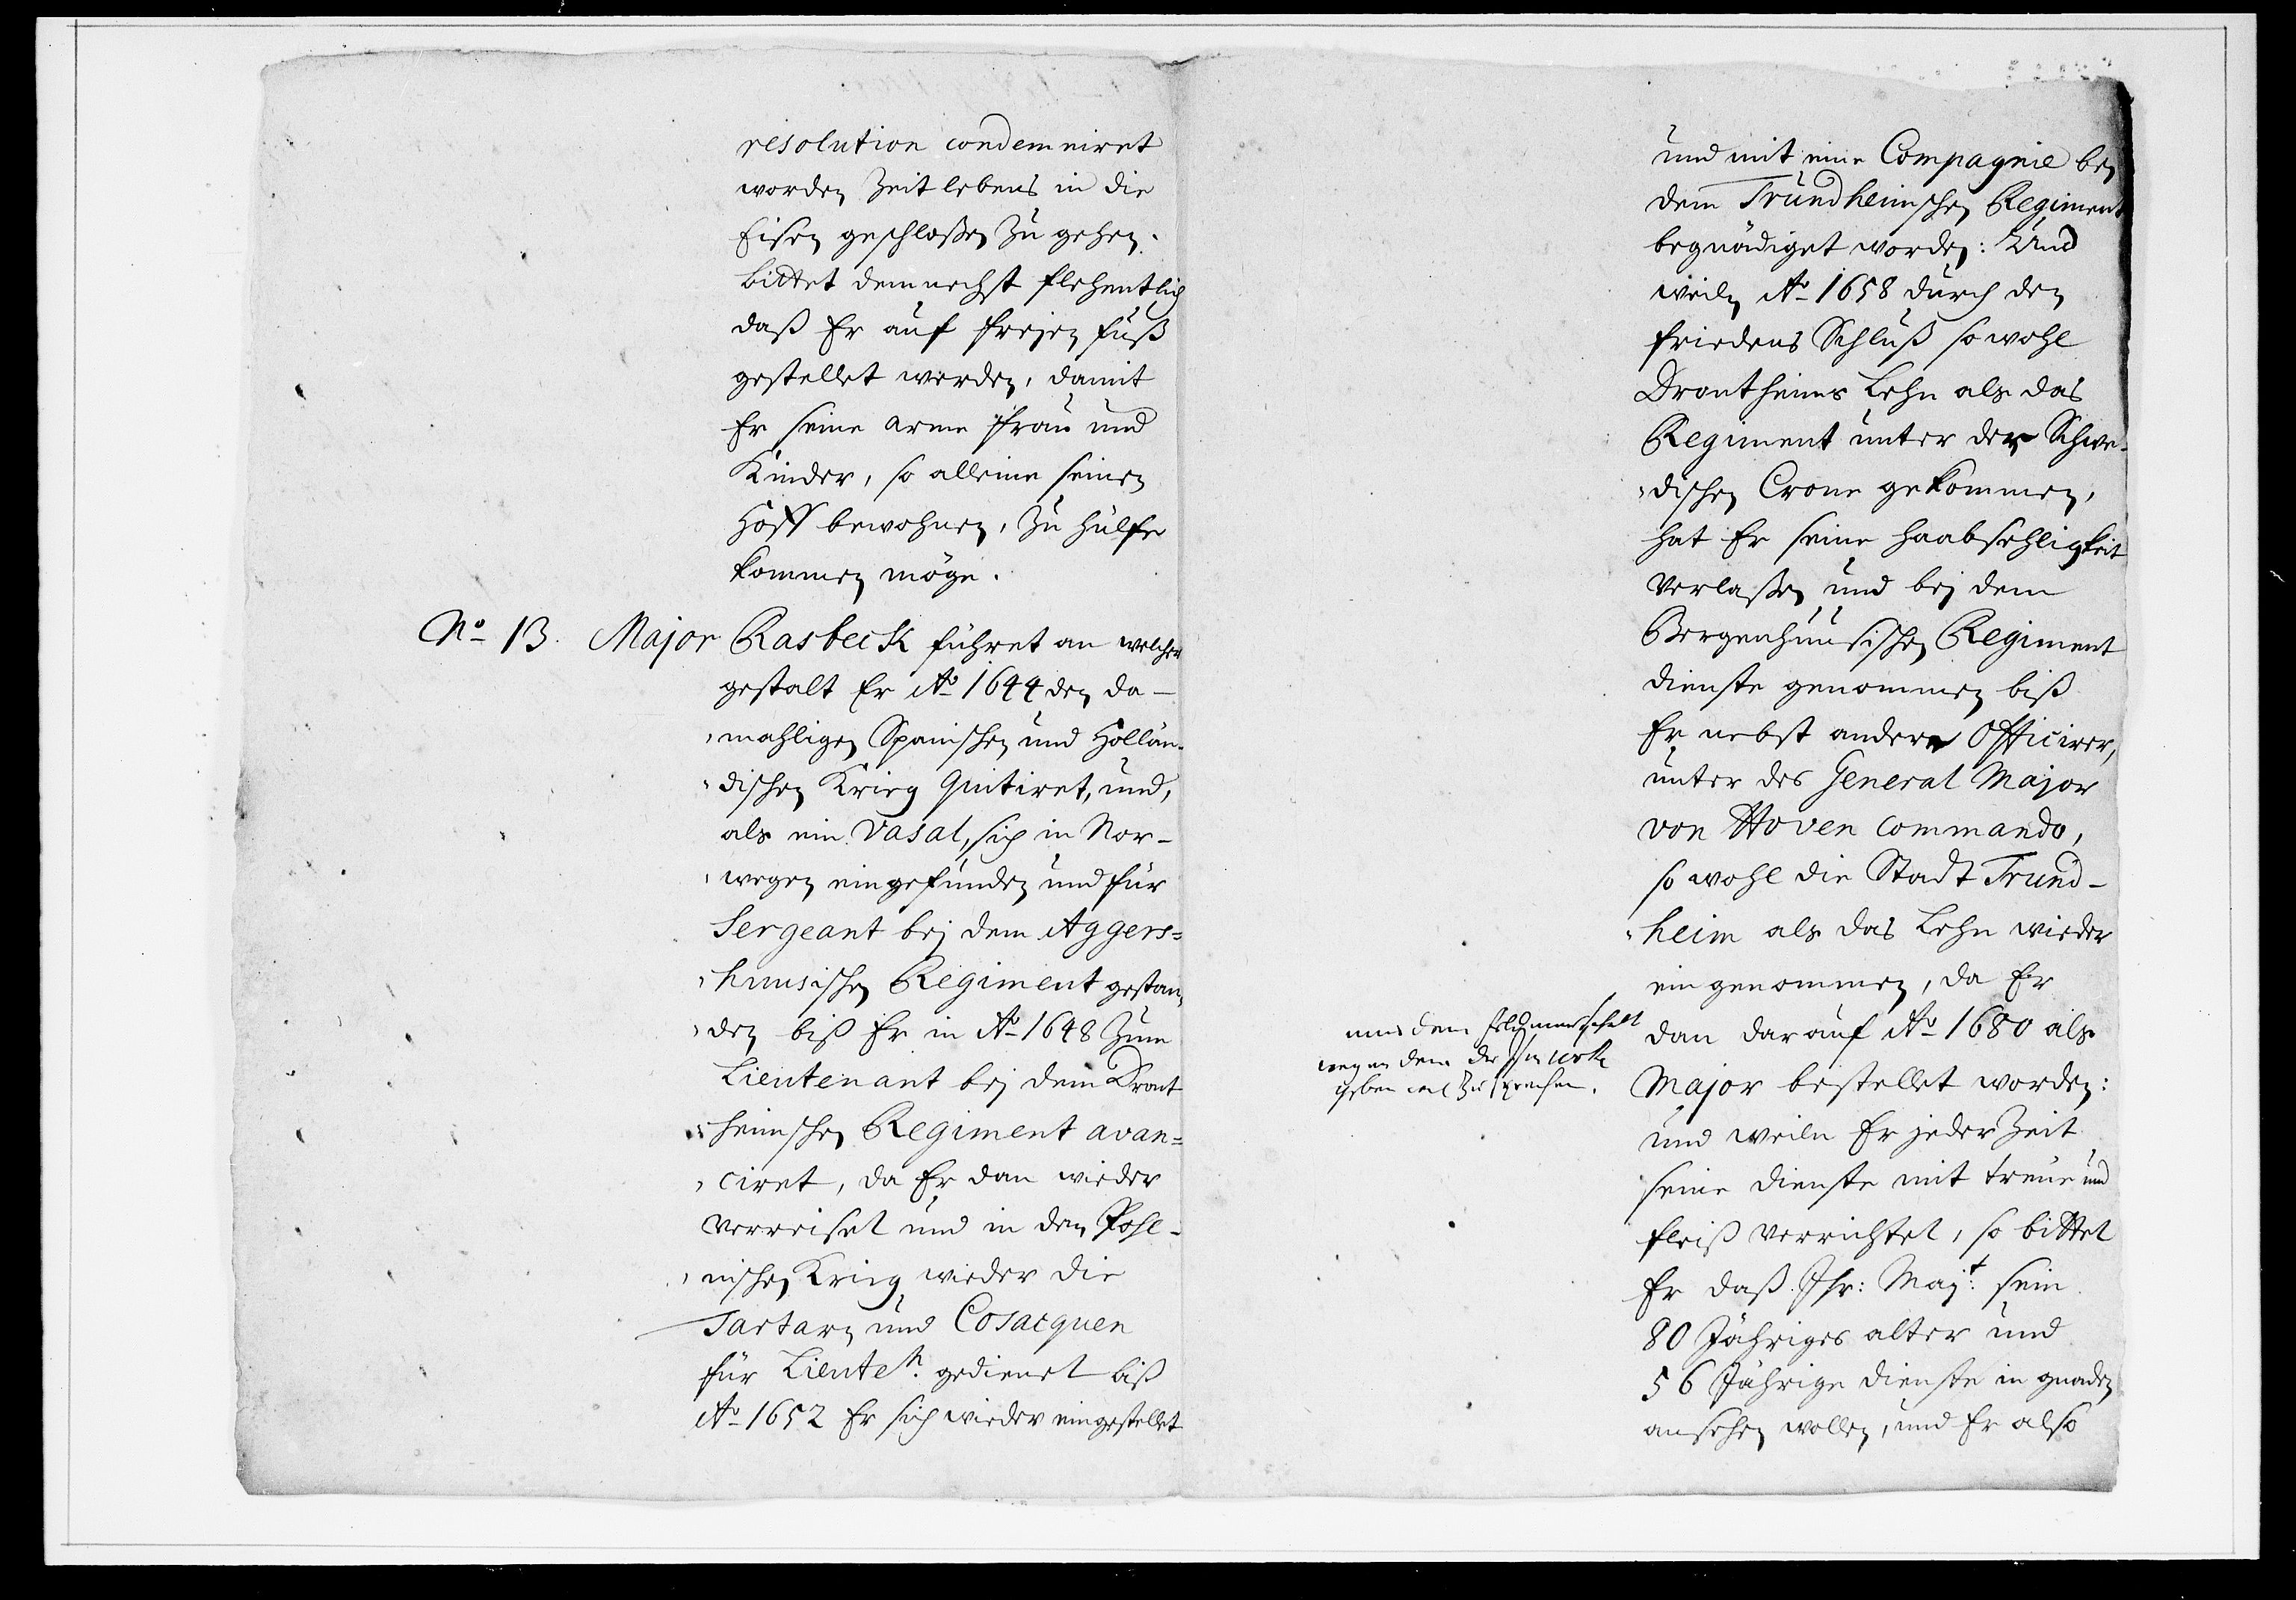 resolution condemniret
worden Zeit lebens in die
Eisen geschloßen Zu gehen.
Bittet demnechst flehentlich
daß Er auf freyen fuß
gestellet werden, damit
Er seine arme frau und
Kinder, so alleine seinen
Hoff bewohnen, Zu hülffe
kommen möge.
No 13. Major Rasbeck führet an welcher
gestalt Er Ao 1644 den da-
mahligen Spanischen und Hollän-
dischen Krieg quitiret, und,
als ein Vasal, sich in Nor-
wegen eingefunden und für
Sergeant bej dem Aggers=
huusischen Regiment gestan-
den biß Er in Ao 1648 Zum
Lieutenant bej dem Dront
heimschen Regiment avan=
ciret, da Er dan wieder
verreiset und in den Pohl-
nischen Krieg wieder die
Tartarn und Cosacquen
für Lieuten. gedienet biß
Ao 1652 Er sich wieder eingestellet
und mit eine Compagnie bey
dem Trundheimschen Regiment
begnädiget worden: Und
weiln Ao 1658 durch den
friedens Schluß so wohl
Drontheims Lehn als das
Regiment unter der Schwe-
dischen Crone gekommen,
hat Er seine haabsehligkeit
verlaßen und bej dem
Bergenhuusischen Regiment
dienste genommen biß
Er nebst andere Officirer,
unter des General Major
von Hoven commando,
so wohl die Stadt Trund-
heim als das Lehn wieder
ein genommen, da Er
dan darauf Ao 1680 als
Major bestellet worden:
und weiln Er jeder Zeit
seine dienste mit treue und
fleiß verrichtet, so bittet
Er daß Ihr: Majt: sein
80 Jähriges alter und
56 Jährige dienste in gnaden
ansehen wollen, und Er also
mit dem feldmarschalk
wegen dem
Zu sprechen.